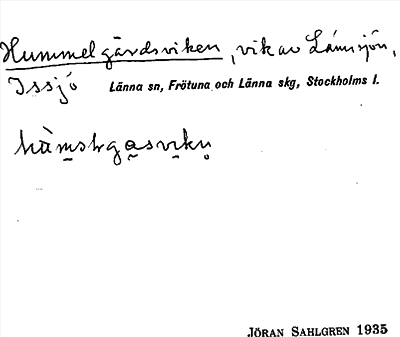 Hummelgärdsviken, vik av Länsjön,
Issjö Länna sn, Frötuna och Länna skg, Stockholms l.
JÖRAN SAHLGREN 1935